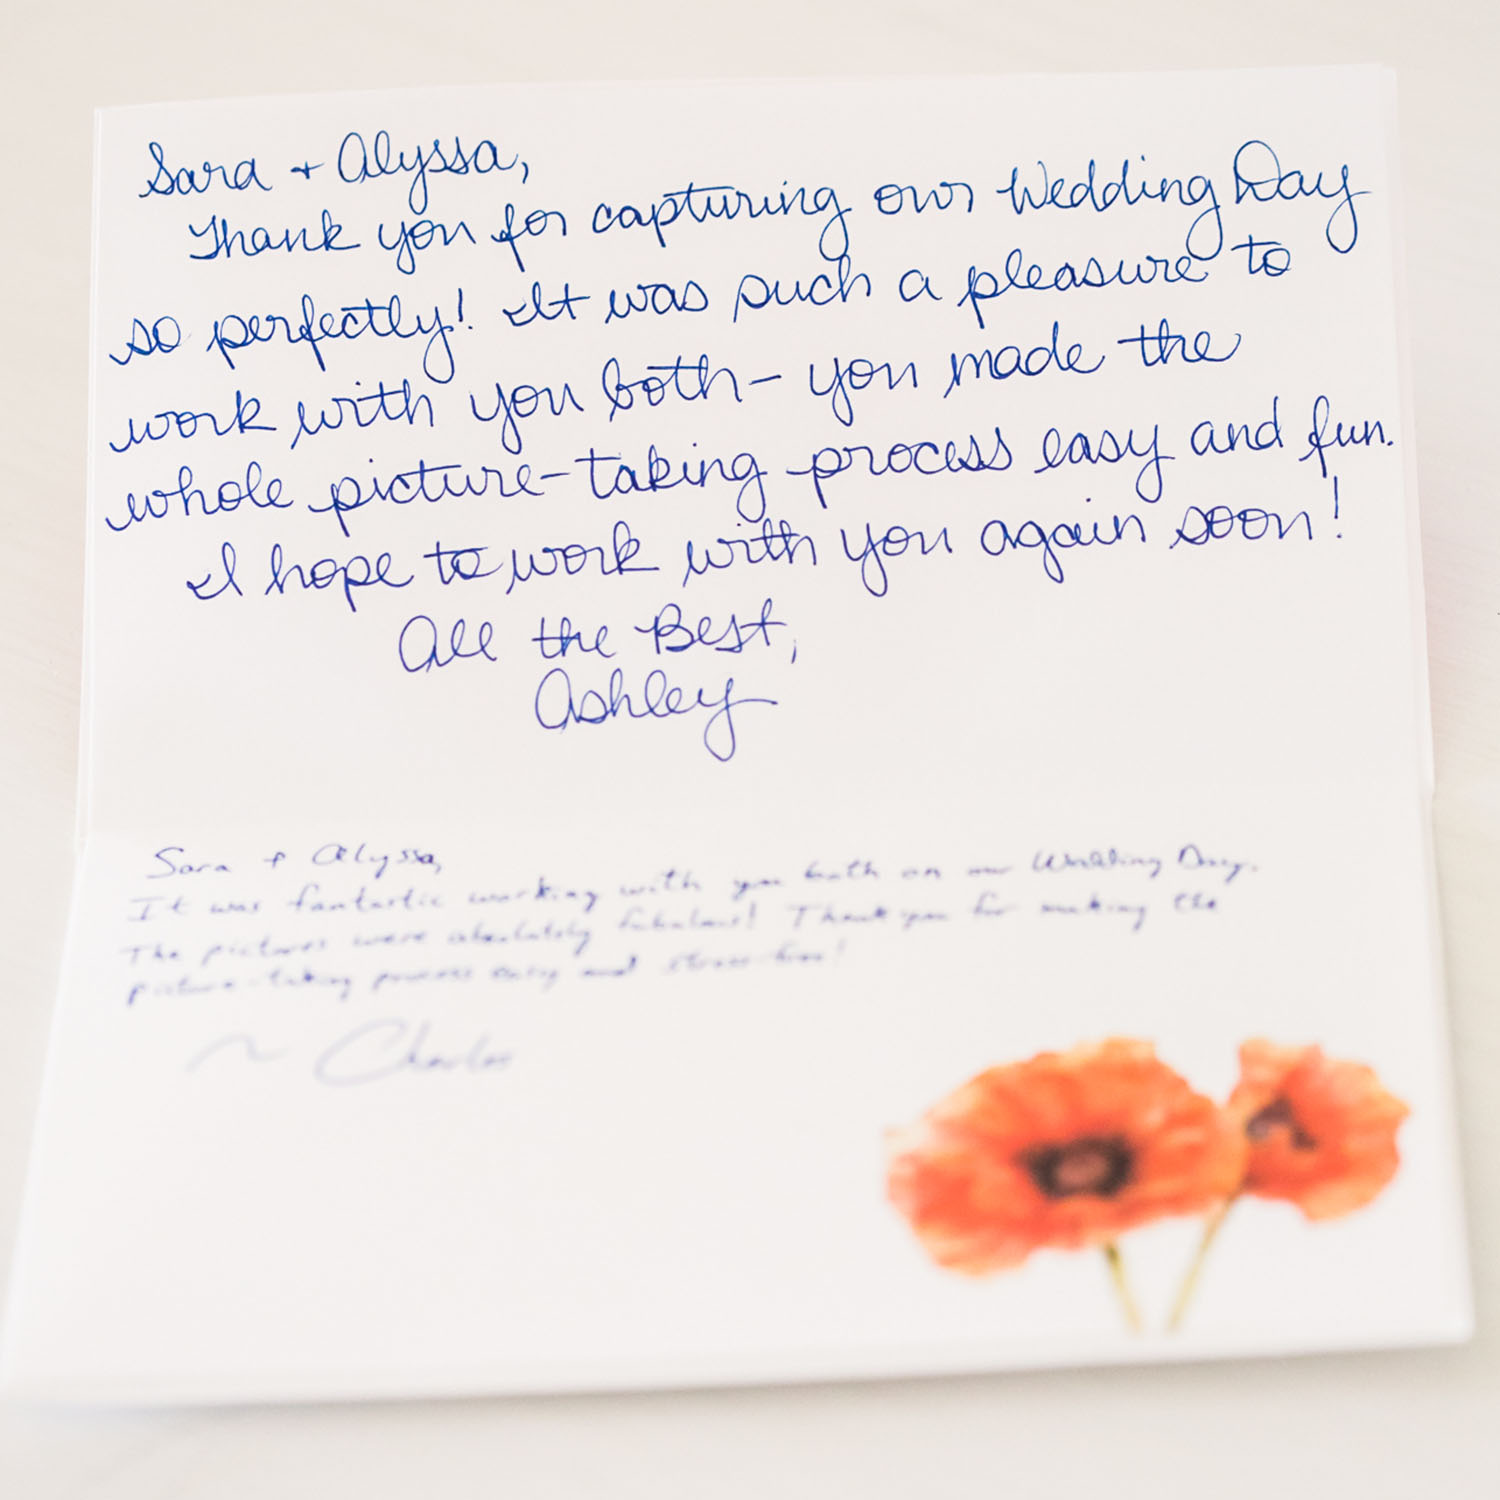 Sara + Alyssa,
Thank you for capturing our Wedding Day
so perfectly! It was such a pleasure to
work with you both- you made the
whole picture-taking process easy and fun.
I hope to work with you again soon!
All the Best,
Ashley
Sara + Alyssa,
It was fantastic working with you both on our Wedding Day.
The pictures were absolutely fabulous! Thank you for making the
picture-taking process easy and stress-free!
~ Charles